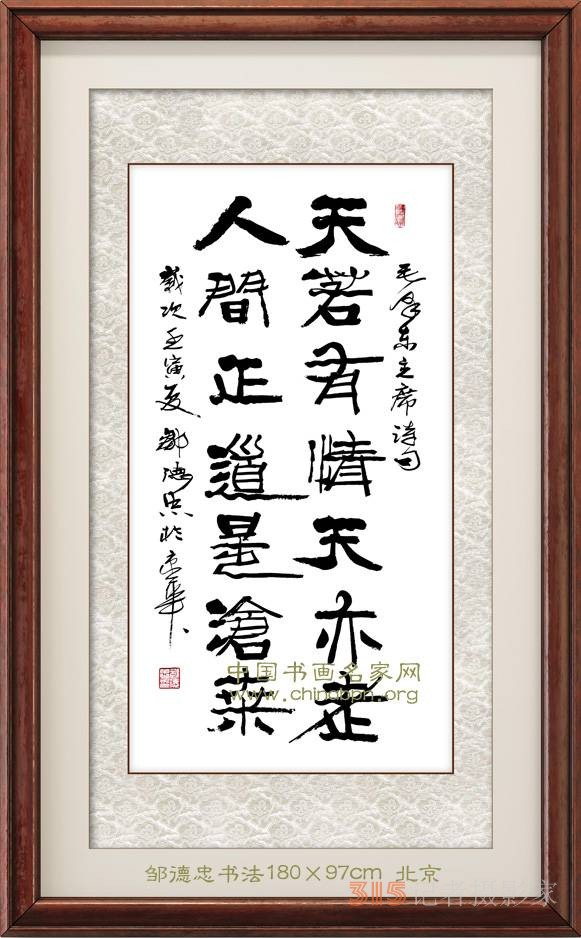 毛泽东主席诗句
天若有情天亦老
人間正道是滄桑
歲次壬寅夏 鄒德忠於京華
中国书画名家网
www.chinabpn.org
邹德忠书法180×97cm 北京
315记者摄影家